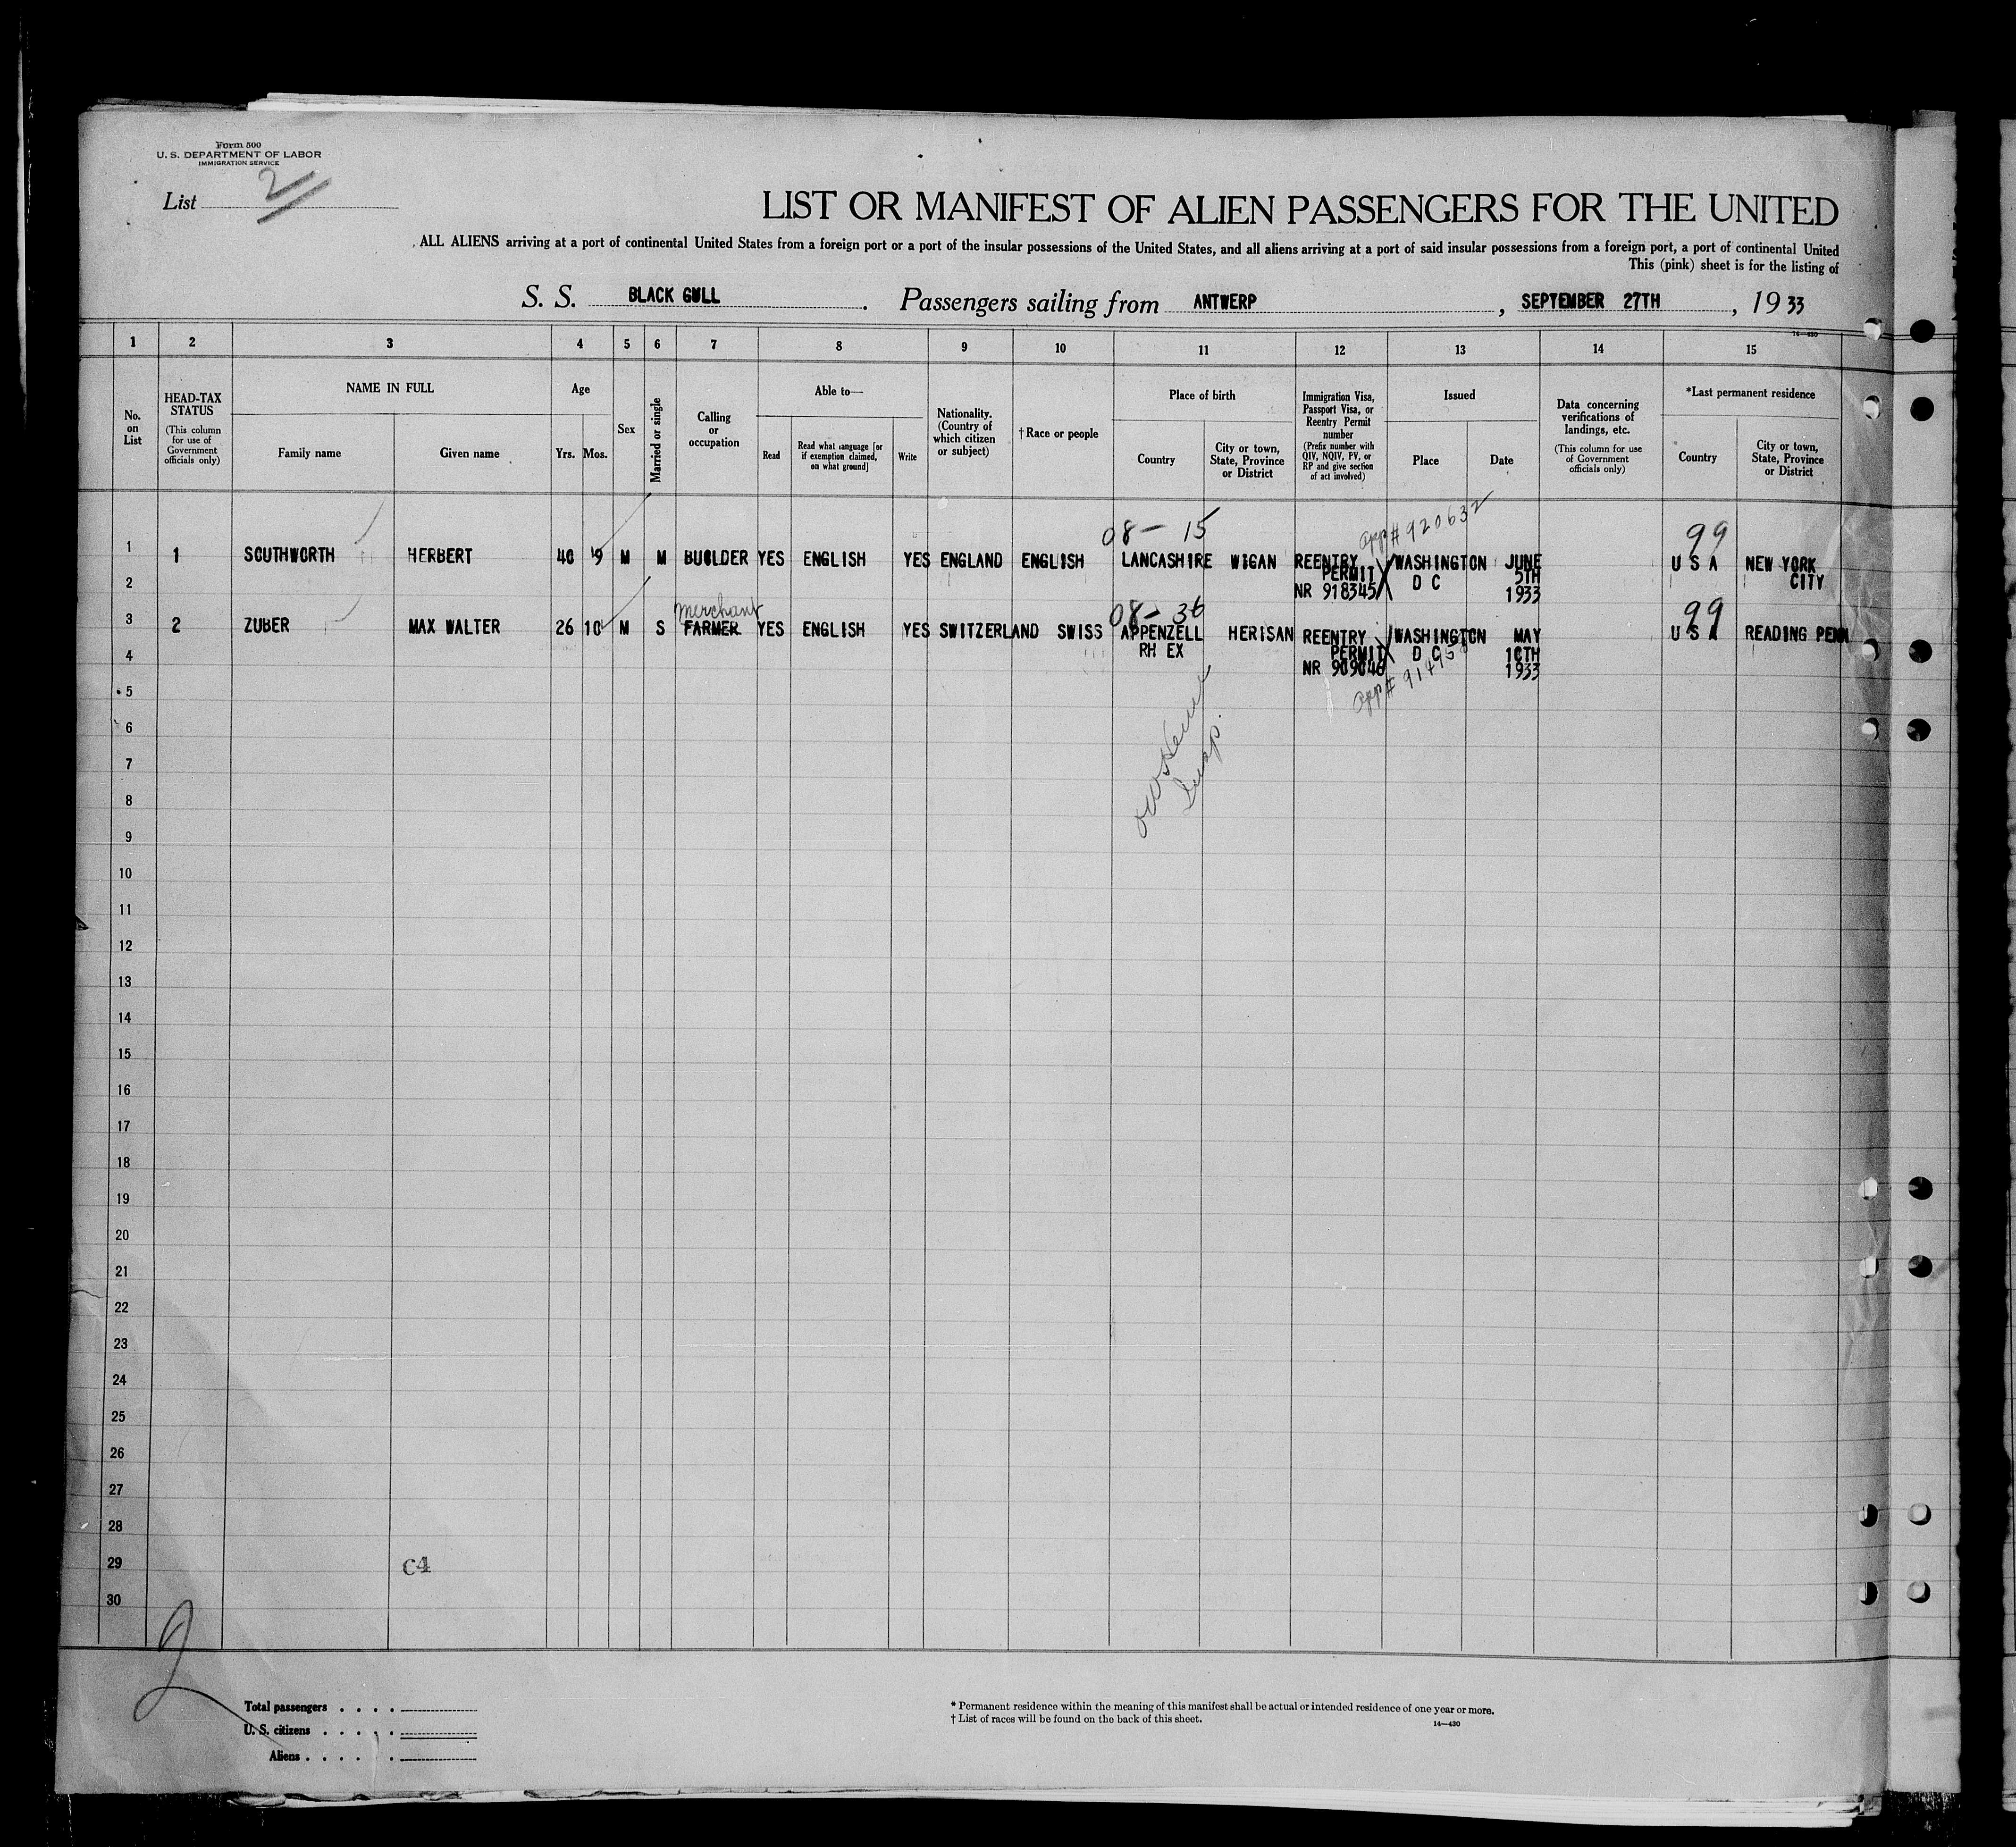 Form 500
U. S. DEPARTMENT OF LABOR
IMMIGRATION SERVICE
List 2
LIST OR MANIFEST OF ALIEN PASSENGERS FOR THE UNITED
ALL ALIENS arriving at a port of continental United States from a foreign port or a port of the insular possessions of the United States, and all aliens arriving at a port of said insular possessions from a foreign port, a port of continental United
This (pink) sheet is for the listing of
S. S. BLACK GULL. Passengers sailing from ANTWERP, SEPTEMBER 27TH, 1933
14—430
1 2 3 4 5 6 7 8 9 10 11 12 13 14 15
No. on List
HEAD-TAX STATUS
(This column for use of Government officials only)
NAME IN FULL
Family name
Given name
Age
Yrs. Mos.
Sex
Married or single
Calling or occupation
Able to—
Read
Read what language [or if exemption claimed, on what ground]
Write
Nationality. (Country of which citizen or subject)
†Race or people
Place of birth
Country
City or town, State, Province or District
Immigration Visa, Passport Visa, or Reentry Permit number
(Prefix number with QIV, NQIV, PV, or RP and give section of act involved)
Issued
Place
Date
Data concerning verifications of landings, etc.
(This column for use of Government officials only)
*Last permanent residence
Country
City or town, State, Province or District
08— 15 App# 920632 99
1 1 SOUTHWORTH HERBERT 40 9 M M BUILDER YES ENGLISH YES ENGLAND ENGLISH LANCASHIRE WIGAN REENTRY WASHINGTON JUNE U S A NEW YORK
PERMIT D C 5TH CITY
2 NR 918345 1933
Merchant 08— 36 99
3 2 ZUBER MAX WALTER 26 10 M S FARMER YES ENGLISH YES SWITZERLAND SWISS APPENZELL HERISAN REENTRY WASHINGTON MAY U S A READING PENN
4 RH EX PERMIT D C 10TH
NR 909046 1933
App#
5
6
7
8
9
10
11
12
13
14
15
16
17
18
19
20
21
22
23
24
25
26
27
28
29 C4
30
2
Total passengers . . . .
U. S. citizens . . . . .
Aliens . . . . .
* Permanent residence within the meaning of this manifest shall be actual or intended residence of one year or more.
† List of races will be found on the back of this sheet.
14—430